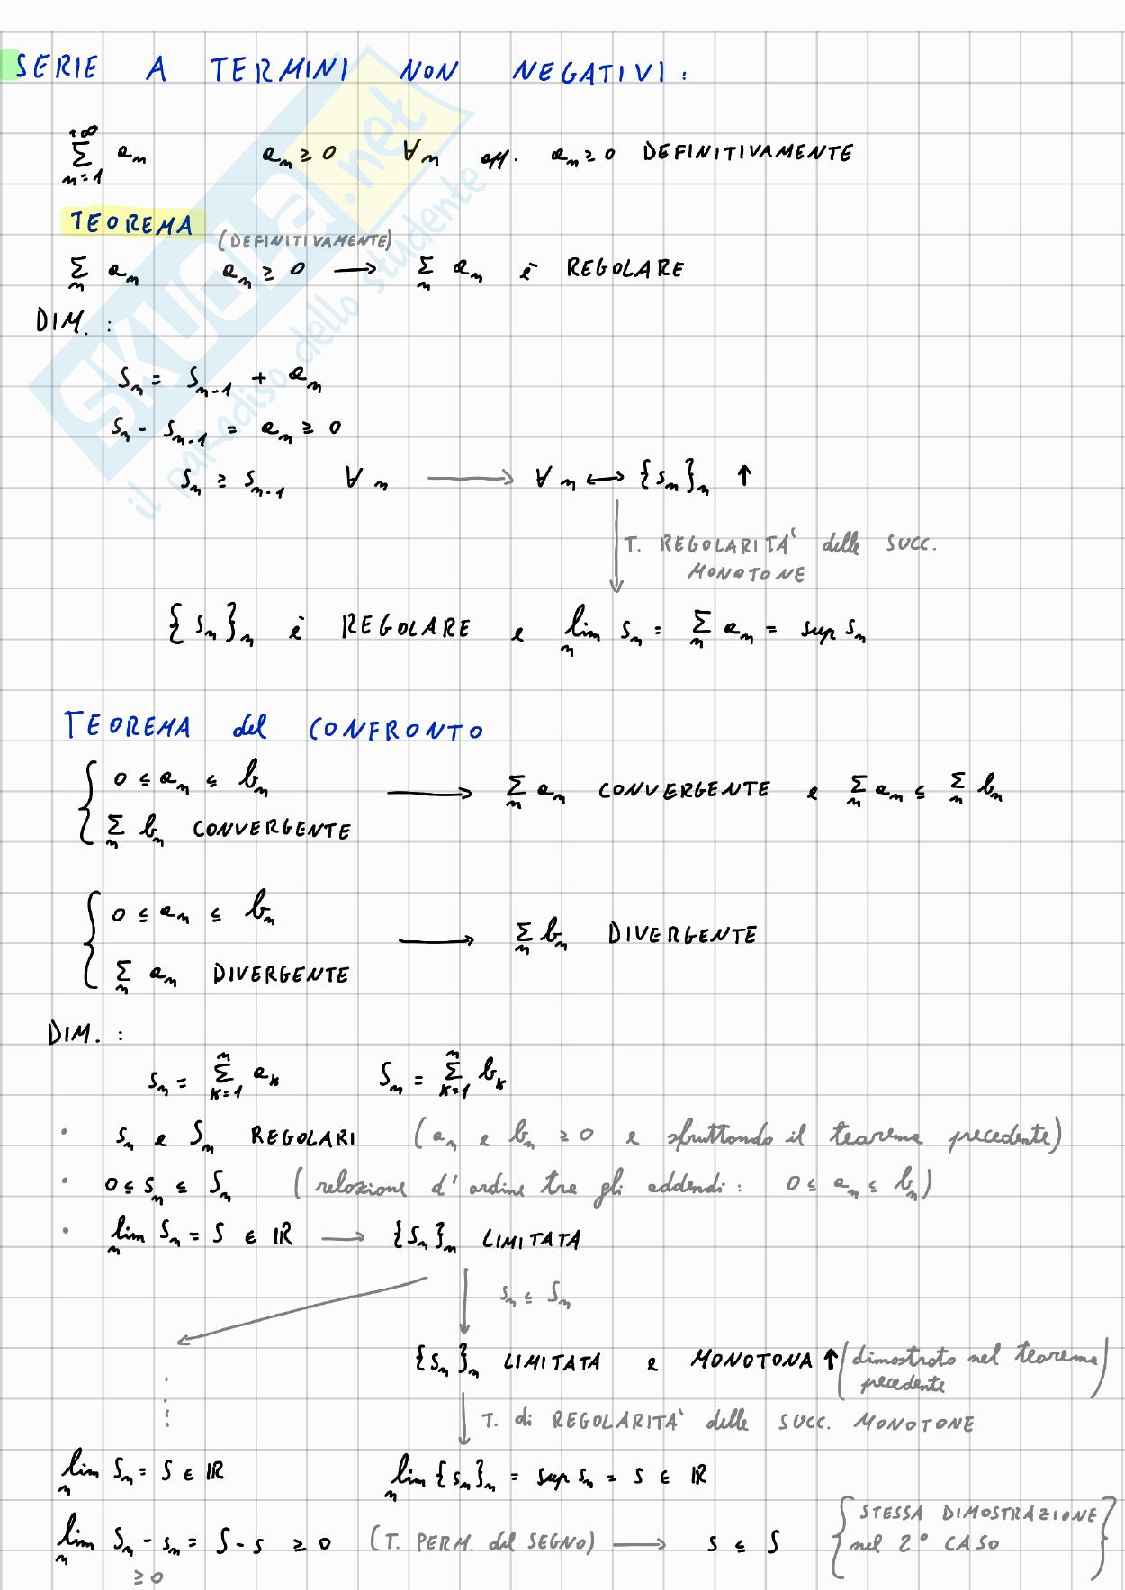 SERIE A TERMINI NON NEGATIVI:
+∞ Σ n=1 aₙ aₙ ≥ 0 ∀n opp. aₙ ≥ 0 DEFINITIVAMENTE
TEOREMA
(DEFINITIVAMENTE)
Σₙ aₙ aₙ ≥ 0 → Σₙ aₙ è REGOLARE
DIM.:
Sₙ = Sₙ₋₁ + aₙ
Sₙ - Sₙ₋₁ = aₙ ≥ 0
Sₙ ≥ Sₙ₋₁ ∀n → ∀n ↔ {Sₙ}ₙ ↑
T. REGOLARITA' delle SUCC.
MONOTONE
{Sₙ}ₙ è REGOLARE e limₙ Sₙ = Σₙ aₙ = sup Sₙ
TEOREMA del CONFRONTO
{ 0 ≤ aₙ ≤ bₙ
Σₙ bₙ CONVERGENTE → Σₙ aₙ CONVERGENTE e Σₙ aₙ ≤ Σₙ bₙ
{ 0 ≤ aₙ ≤ bₙ
Σₙ aₙ DIVERGENTE → Σₙ bₙ DIVERGENTE
DIM.:
sₙ = Σ k=1 n aₖ Sₙ = Σ k=1 n bₖ
• sₙ e Sₙ REGOLARI (aₙ e bₙ ≥ 0 e sfruttando il teorema precedente)
• 0 ≤ sₙ ≤ Sₙ (relazione d'ordine tra gli addendi: 0 ≤ aₙ ≤ bₙ)
• limₙ Sₙ = S ∈ ℝ → {Sₙ}ₙ LIMITATA
sₙ ≤ Sₙ
{sₙ}ₙ LIMITATA e MONOTONA ↑ (dimostrato nel teorema
precedente)
T. di REGOLARITA' delle SUCC. MONOTONE
limₙ Sₙ = S ∈ ℝ limₙ {sₙ}ₙ = sup sₙ = s ∈ ℝ
limₙ Sₙ - sₙ = S - s ≥ 0 (T. PERM. del SEGNO) → s ≤ S
≥ 0
{STESSA DIMOSTRAZIONE
nel 2° CASO}
SKUOLA.net
il paradiso dello studente